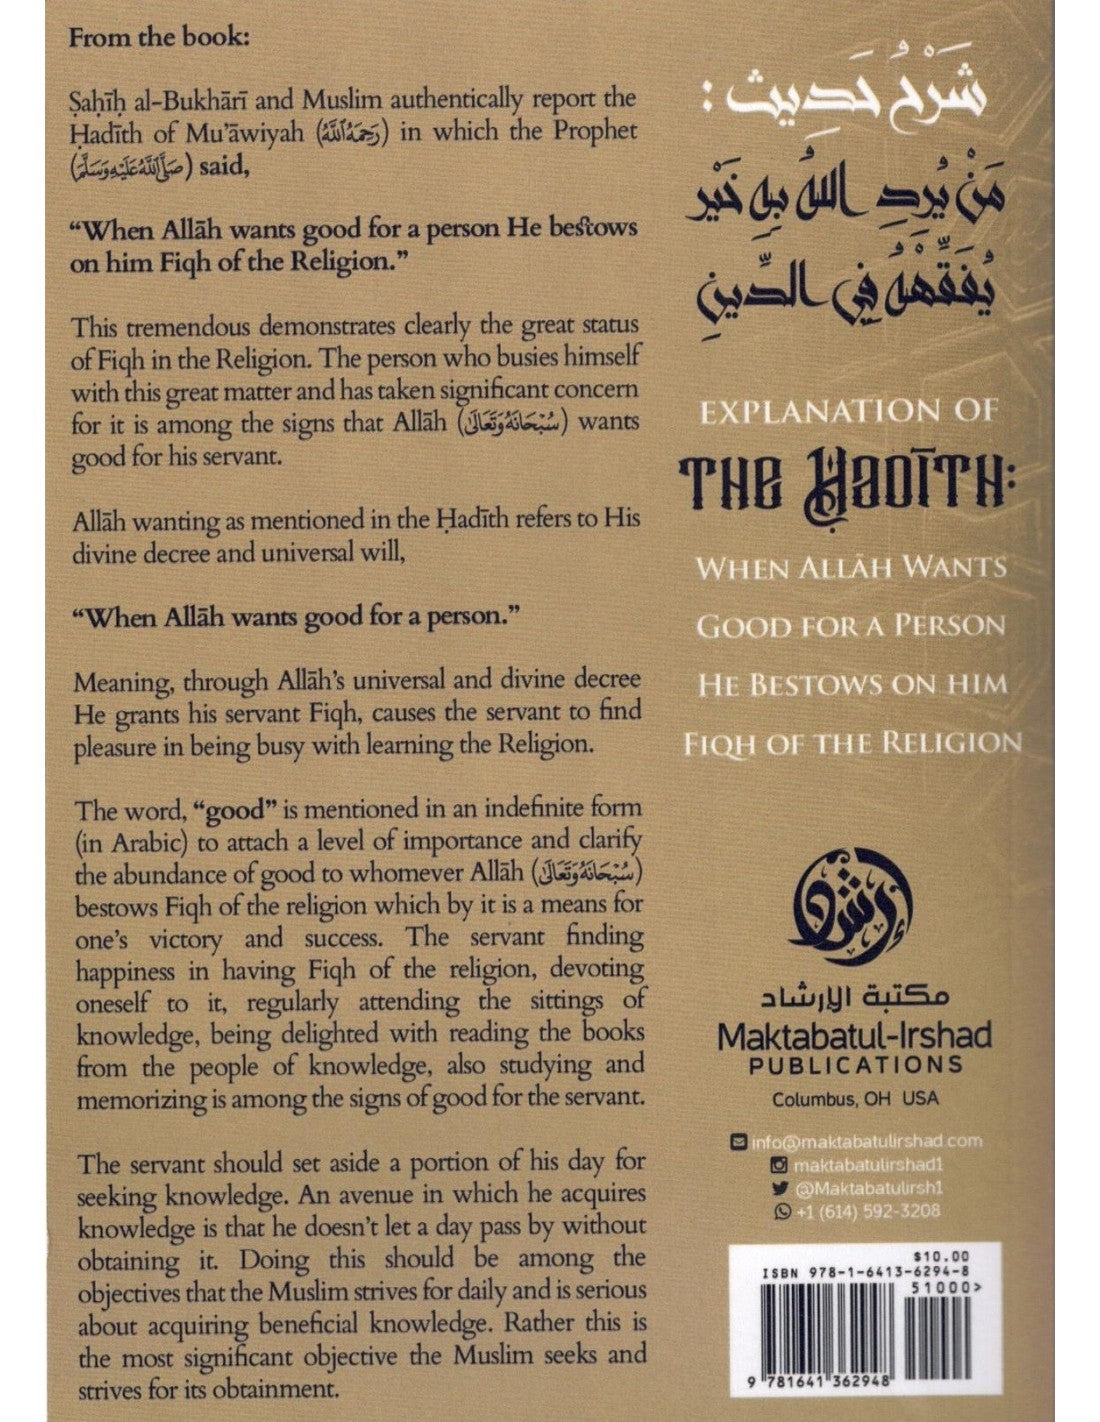 From the book:
Ṣaḥīḥ al-Bukhārī and Muslim authentically report the
Ḥadīth of Mu'āwiyah (رَحِمَهُ اللَّهُ) in which the Prophet
(صَلَّى اللَّهُ عَلَيْهِ وَسَلَّمَ) said,
“When Allāh wants good for a person He bestows
on him Fiqh of the Religion.”
This tremendous demonstrates clearly the great status
of Fiqh in the Religion. The person who busies himself
with this great matter and has taken significant concern
for it is among the signs that Allāh (سُبْحَانَهُ وَتَعَالَىٰ) wants
good for his servant.
Allāh wanting as mentioned in the Ḥadīth refers to His
divine decree and universal will,
“When Allāh wants good for a person.”
Meaning, through Allāh’s universal and divine decree
He grants his servant Fiqh, causes the servant to find
pleasure in being busy with learning the Religion.
The word, “good” is mentioned in an indefinite form
(in Arabic) to attach a level of importance and clarify
the abundance of good to whomever Allāh (سُبْحَانَهُ وَتَعَالَىٰ)
bestows Fiqh of the religion which by it is a means for
one’s victory and success. The servant finding
happiness in having Fiqh of the religion, devoting
oneself to it, regularly attending the sittings of
knowledge, being delighted with reading the books
from the people of knowledge, also studying and
memorizing is among the signs of good for the servant.
The servant should set aside a portion of his day for
seeking knowledge. An avenue in which he acquires
knowledge is that he doesn’t let a day pass by without
obtaining it. Doing this should be among the
objectives that the Muslim strives for daily and is serious
about acquiring beneficial knowledge. Rather this is
the most significant objective the Muslim seeks and
strives for its obtainment.
شَرْحُ حَدِيثِ :
مَنْ يُرِدِ اللَّهُ بِهِ خَيْرً
يُفَقِّهْهُ فِي الدِّينِ
EXPLANATION OF
THE HADĪTH:
WHEN ALLĀH WANTS
GOOD FOR A PERSON
HE BESTOWS ON HIM
FIQH OF THE RELIGION
إرشاد
مكتبة الإرشاد
Maktabatul-Irshad
PUBLICATIONS
Columbus, OH USA
info@maktabatulirshad.com
maktabatulirshad1
@Maktabatulirsh1
+1 (614) 592-3208
$10.00
ISBN 978-1-6413-6294-8
51000>
9 781641 362948